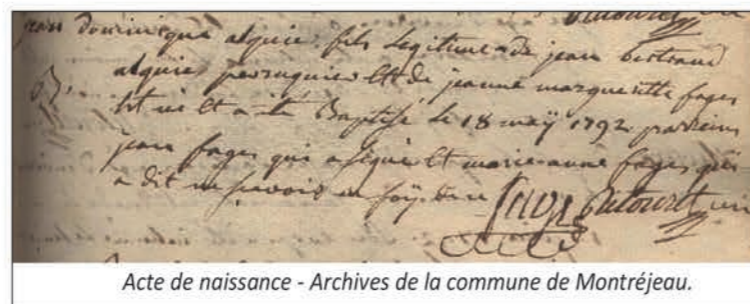 jean dominique alquié fils legitime de jean bertrand
alquié perruquier Et de jeanne marguerite fages
B.
Est né Et a été Baptisé le 18 may 1792 parrein
jean fages qui a signé Et marie anne fages qui
a dit ne savoir en foy
Acte de naissance - Archives de la commune de Montréjeau.